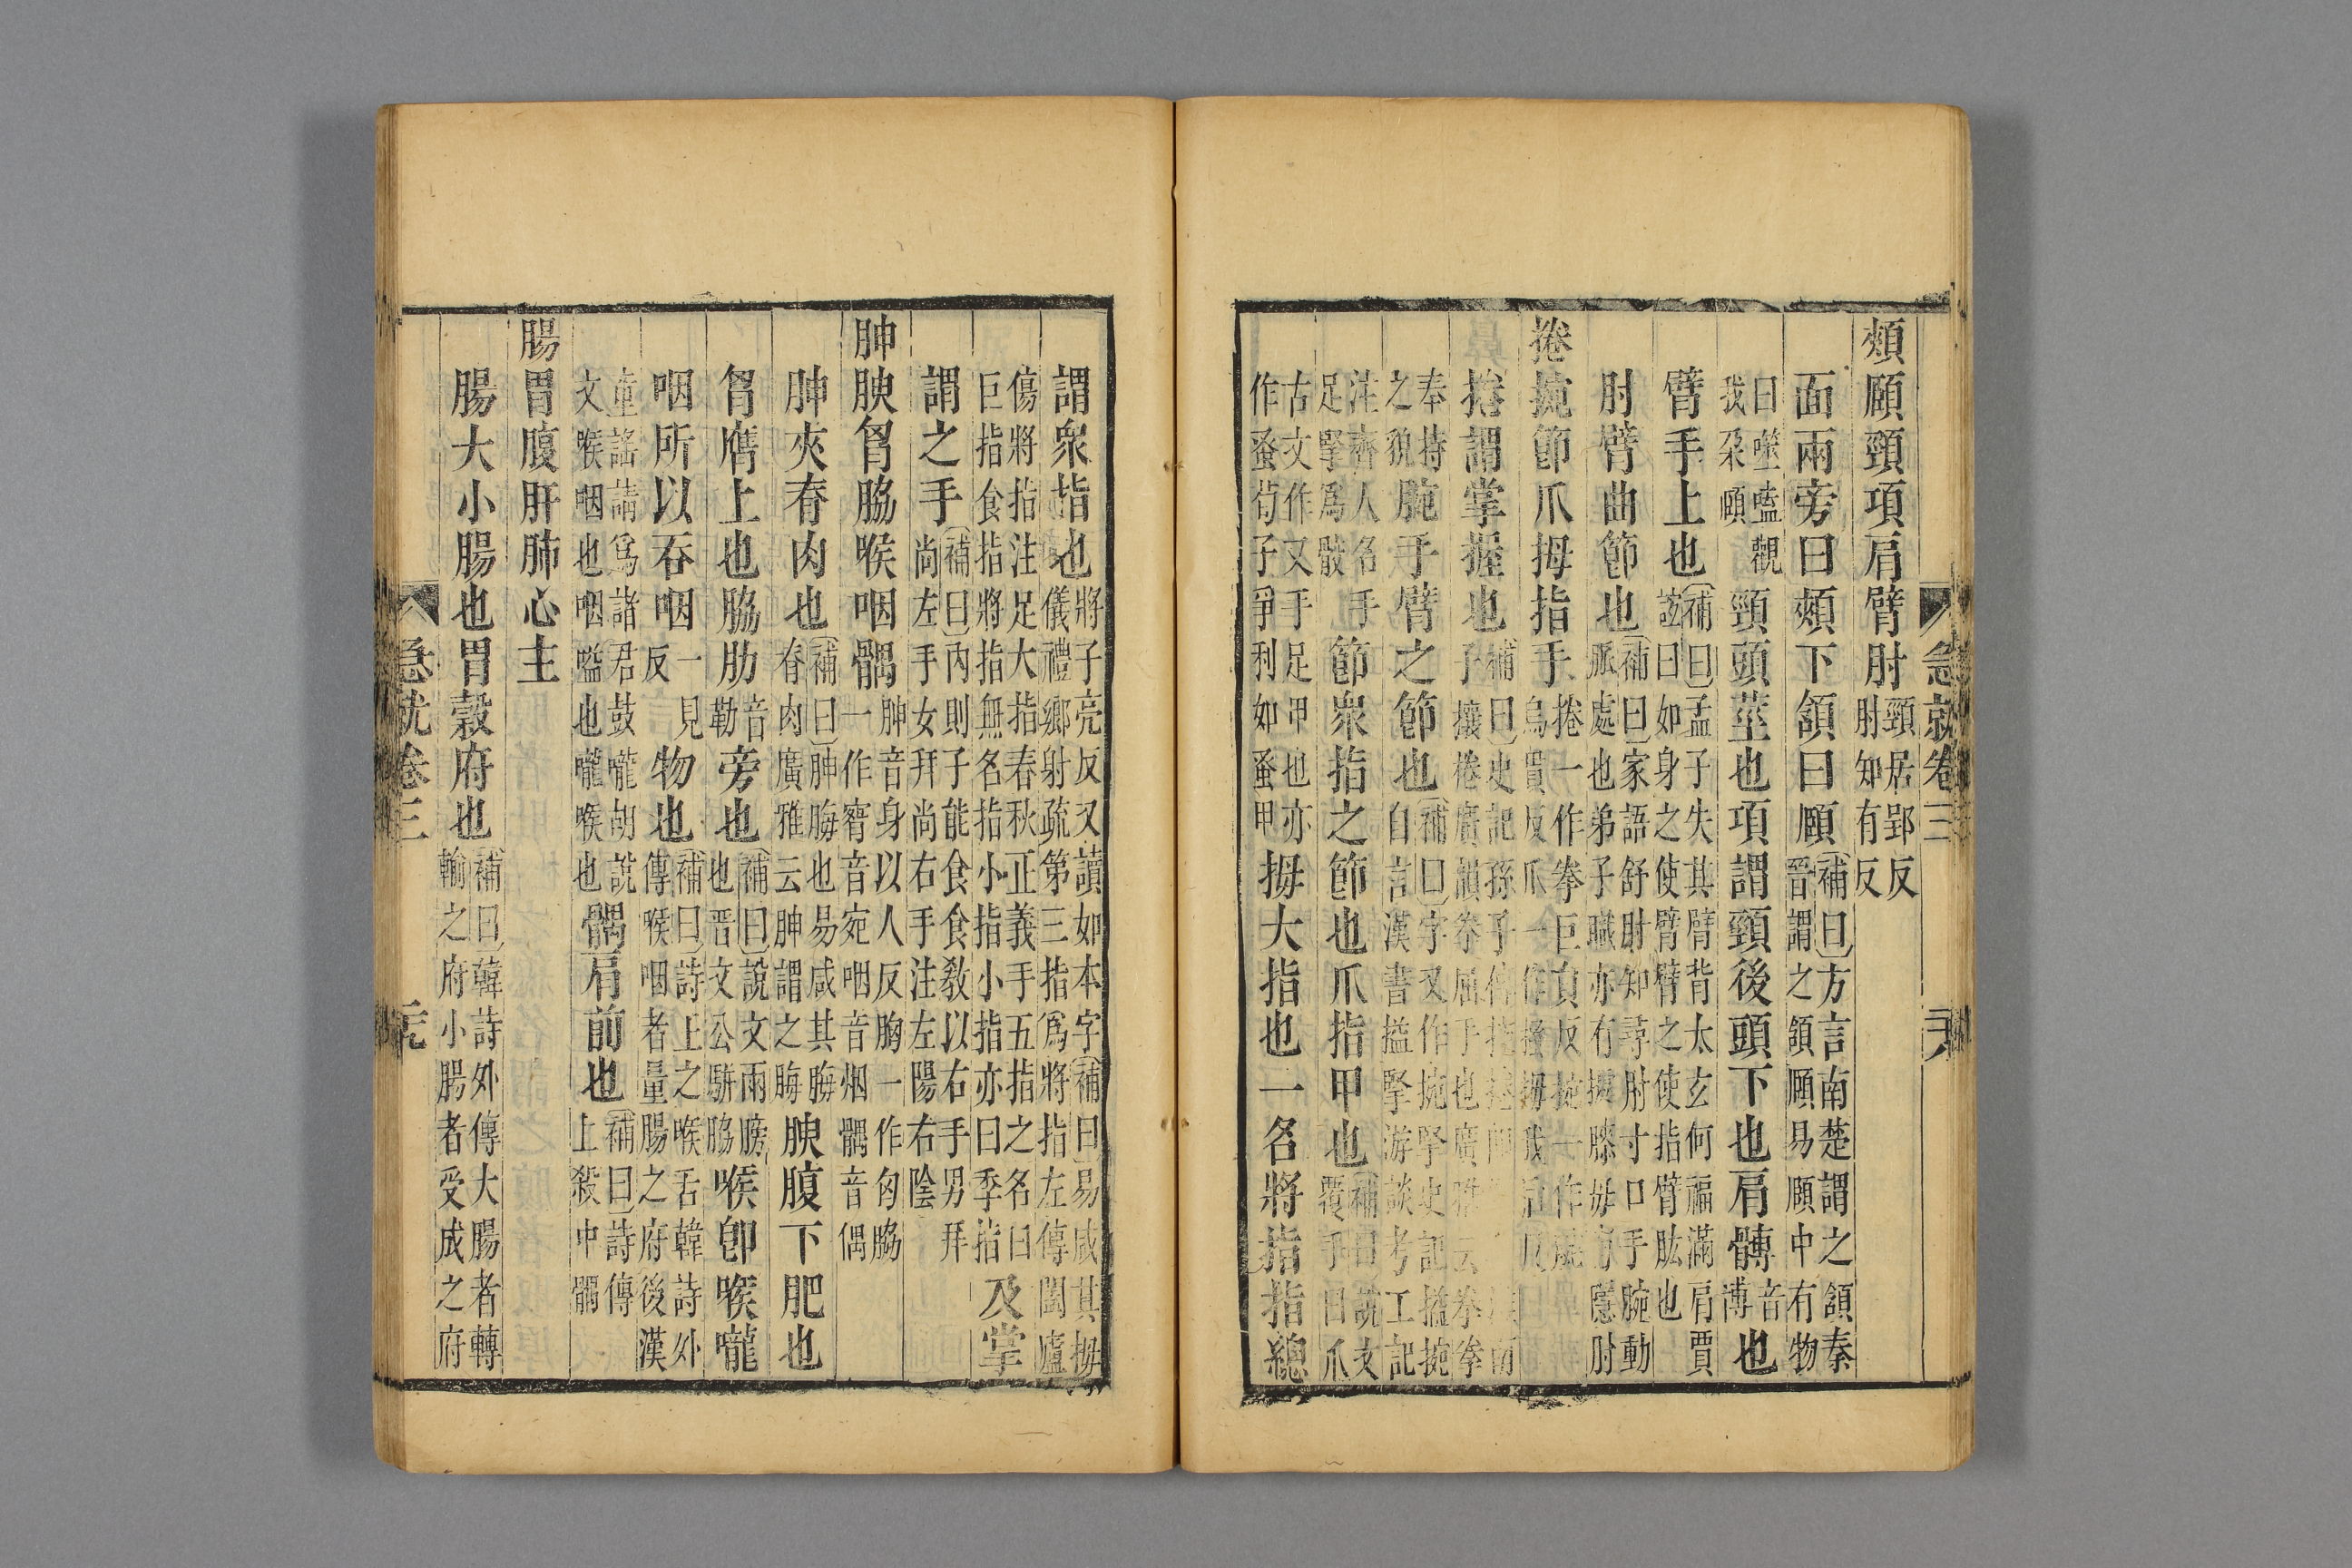 急就卷三
頰頤頸項肩臂肘頸居郢反肘知有反
面兩旁曰頰下頷曰頤補曰方言南楚謂之頷秦晉謂之頷頤易頤中有物
曰噬嗑觀我朶頤頸頭莖也項謂頸後頭下也肩髆音博也
臂手上也補曰孟子失其肩背太玄何福滿肩賈誼曰如身之使臂臂之使指臂肱也
肘臂曲節也補曰家語舒肘知尋肘寸口手腕動脈處也弟子職亦有據膝毋有隱肘
捲捥節爪拇指手捲一作拳巨員反捥一作腕烏貫反爪一作搔拇
捲謂掌握也補曰史記孫子攘捲廣韻拳屈手也廣雅云拳
奉持之貌腕手臂之節也補曰字又作捥掔史記搤捥自言漢書搤掔游談考工記
注齊人名手足掔爲骹節衆指之節也爪指甲也補曰說文覆手曰爪
古文作叉手足甲也亦作蚤荀子爭利如蚤甲拇大指也一名將指指總
謂衆指也將子亮反又讀如本字補曰易咸其拇儀禮鄉射疏第三指爲將指左傳闔廬
傷將指注足大指春秋正義手五指之名曰巨指食指將指無名指小指小指亦曰季指及掌
謂之手補曰內則子能食食敎以右手男拜尚左手女拜尚右手注左陽右陰
胂腴胷脇喉咽髃胂音身以人反胸一作匈脇一作𦝫音宛咽音烟髃音偶
胂夾脊肉也補曰胂脢也易咸其脢脊肉廣雅云胂謂之脢腴腹下肥也
胷膺上也脇肋音勒旁也補曰說文兩膀也晉文公駢脇喉卽喉嚨
咽所以吞咽一見反物也補曰詩上之喉舌韓詩外傳喉咽者量腸之府後漢
童謠請爲諸君鼓嚨胡說文喉咽也咽嗌也嚨喉也髃肩前也補曰詩傳上殺中髃
腸胃腹肝肺心主
腸大小腸也胃穀府也補曰韓詩外傳大腸者轉輸之府小腸者受成之府
急就卷三